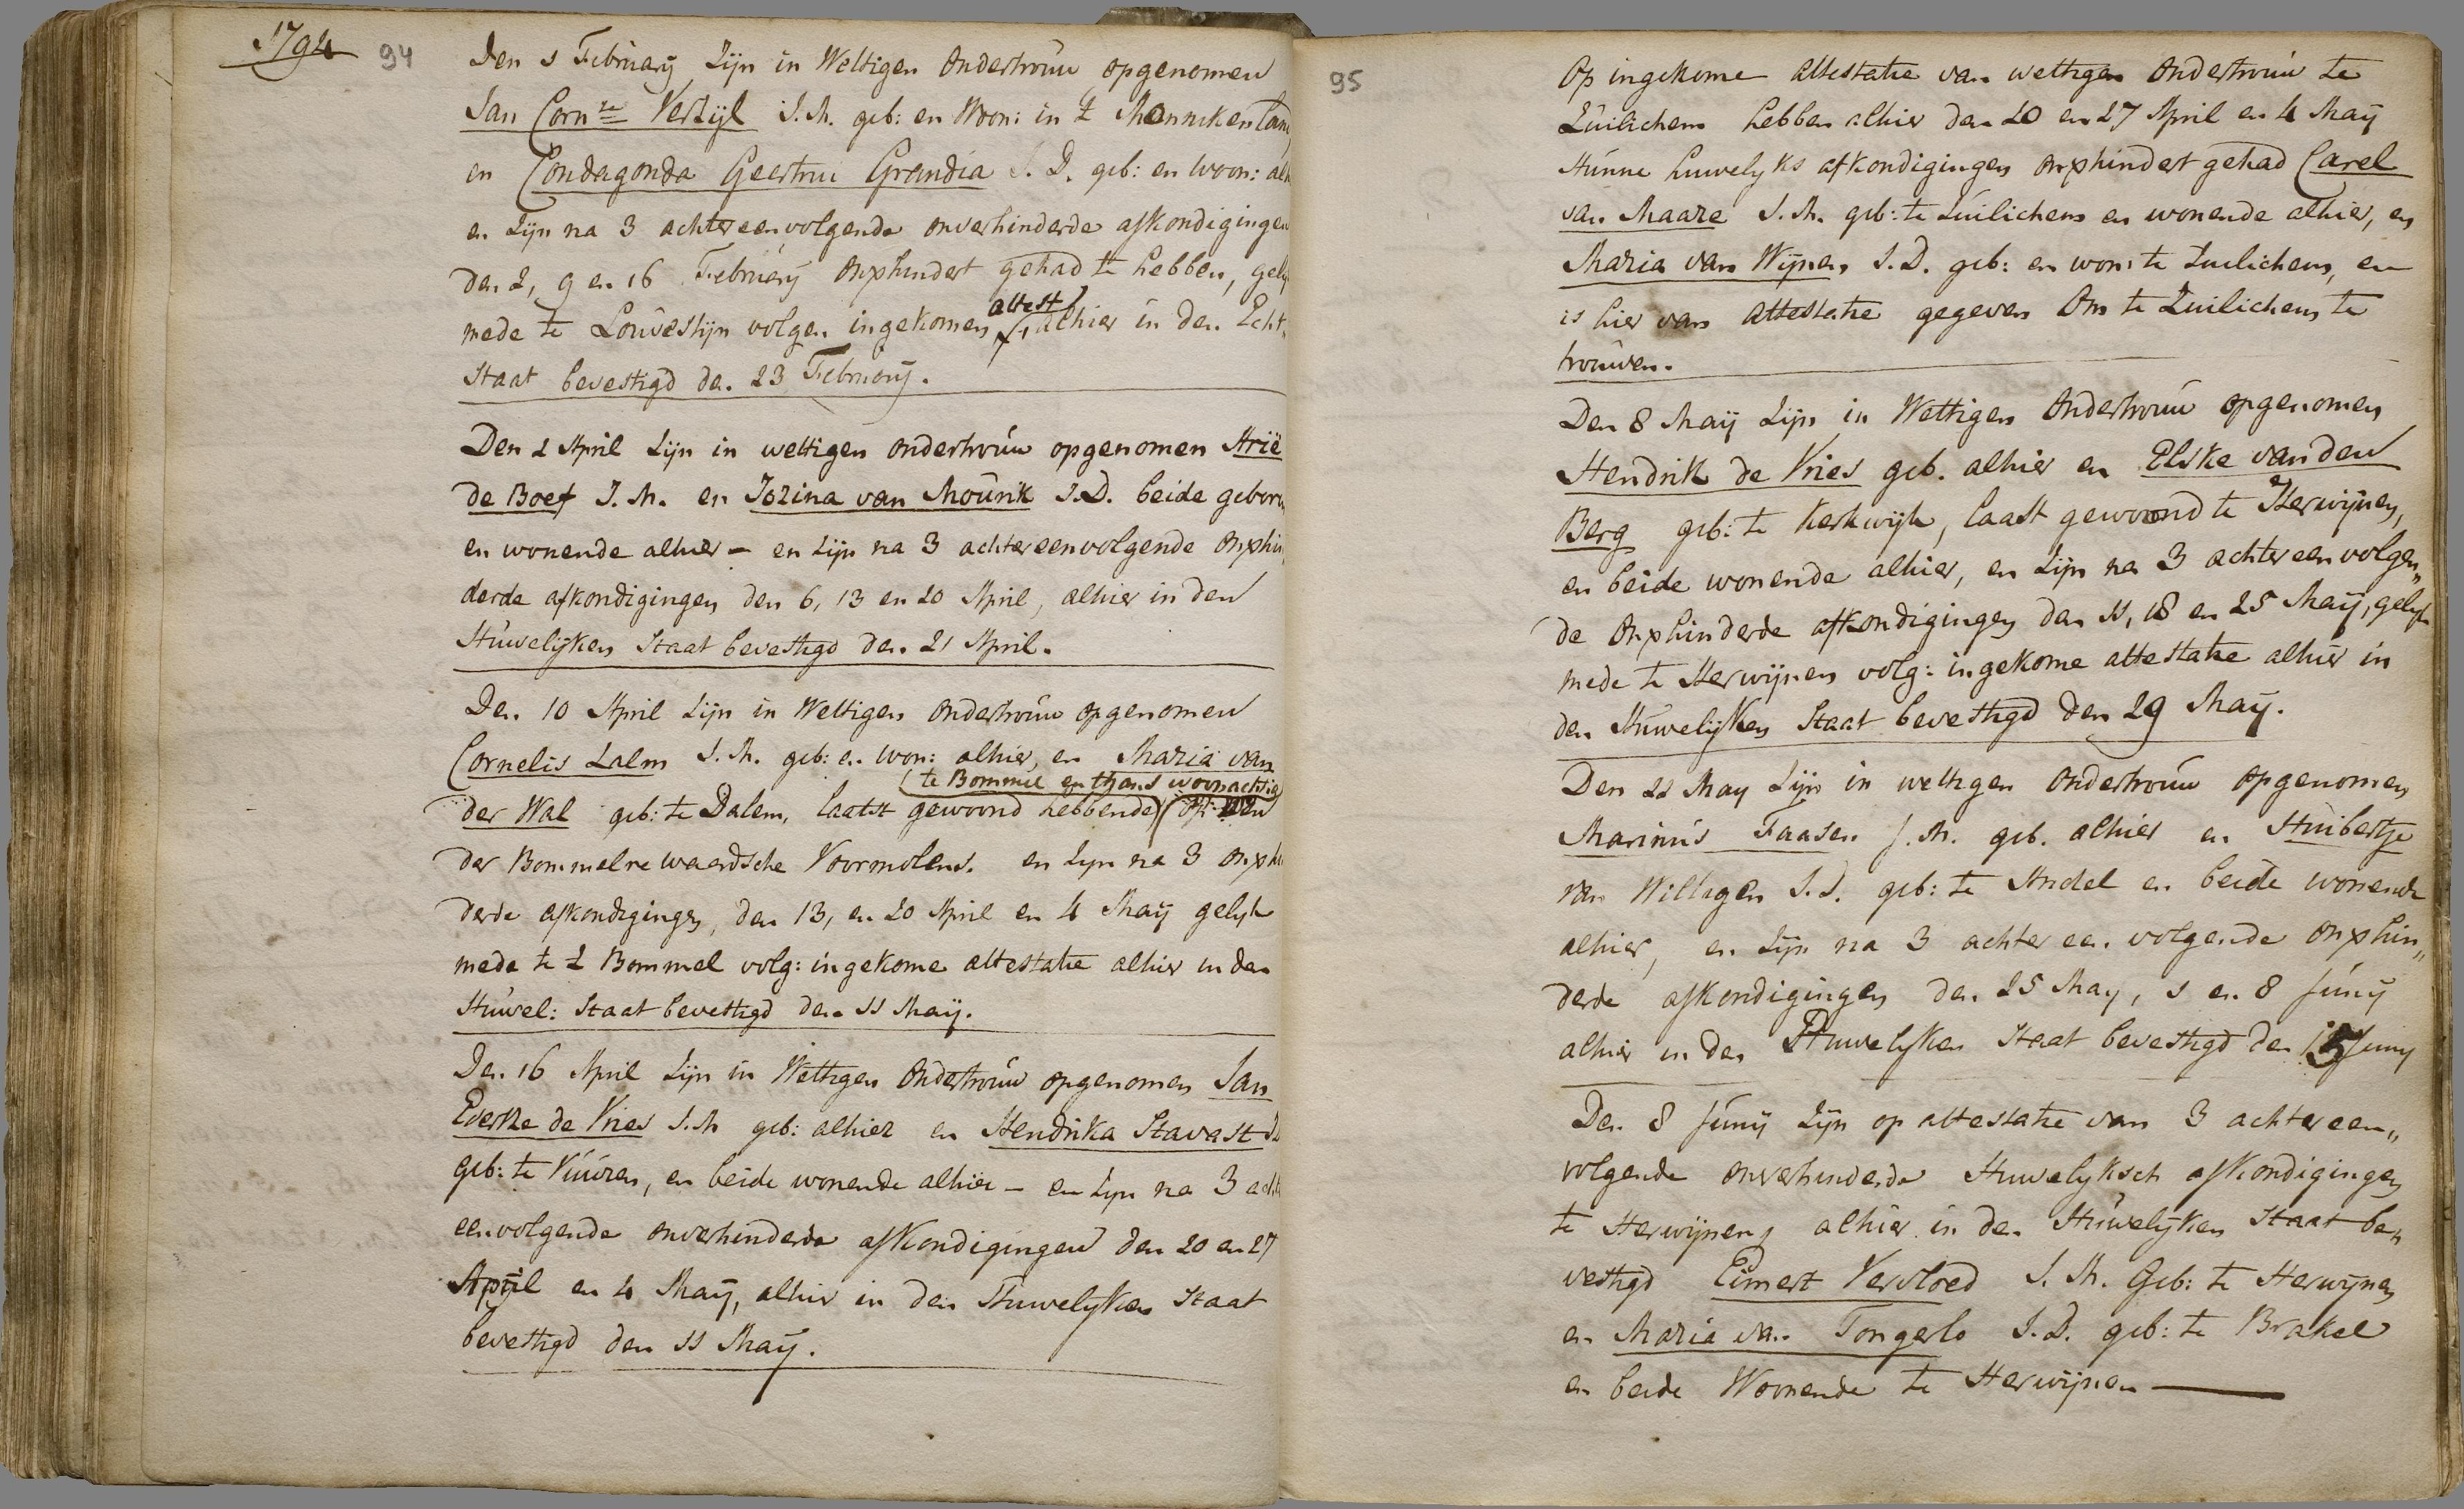 1794
94
Den 1 February Zijn in Wettigen Ondertrouw opgenomen
Jan Corn:ze Verzijl J.M. geb: en Woon: in 't Monnikenland
en Condagonda Geertrui Grandia J.D. geb: en woon: alh
en Zijn na 3 achtereenvolgende onverhinderde afkondigingen
den 2, 9 en 16 February onverhindert gehad te hebben, gelyk
attest
mede te Louvestijn volgen ingekomen alhier in den Echt„
Staat bevestigd den 23 February.
Den 2 April Zijn in wettigen ondertrouw opgenomen Arië
de Boef J.M. en Jozina van Mourik J.D. beide geboren
en wonende alhier – en Zijn na 3 achtereenvolgende onverhin
derde afkondigingen den 6, 13 en 20 April, alhier in den
Huwelijken Staat bevestigd den 21 April.
Den 10 April Zijn in Wettigen Ondertrouw opgenomen
Cornelis Zalm J.M. geb: en won: alhier, en Maria van
te Bommel en thans woonachtig
der Wal geb: te Dalem, laatst gewoond hebbende op een
der Bommelrewaardsche Voormolens. en Zijn na 3 onverhin
derde afkondigingen, den 13, en 20 April en 4 Maij gelyk
mede te Z Bommel volg: ingekome attestatie alhier in den
Huwel: Staat bevestigd den 11 Maij.
Den 16 April Zijn in Wettigen Ondertrouw opgenomen Jan
Evertze de Vries J.M geb: alhier en Hendrika Stavast JD
geb: te Vuuren, en beide wonende alhier – en Zijn na 3 acht
eenvolgende onverhinderde afkondigingen den 20 en 27
April en 4 Maij, alhier in den Huwelyken Staat
bevestigd den 11 Maij.
95
Op ingekome attestatie van wettigen Ondertrouw te
Zuilichem hebben alhier den 20 en 27 April en 4 Maij
Hunne huwelyks afkondigingen onverhindert gehad Carel
van Maare J.M. geb: te Zuilichem en wonende alhier, en
Maria van Wijnen J.D. geb: en won: te Zuilichem, en
is hier van attestatie gegeven Om te Zuilichem te
trouwen.
Den 8 Maij Zijn in Wettigen Ondertrouw opgenomen
Hendrik de Vries geb. alhier en Elske van den
Berg geb: te Kerkwijk, laast gewoond te Herwijnen,
en beide wonende alhier, en Zijn na 3 achtereenvolgen„
de onverhinderde afkondigingen den 11, 18 en 25 Maij, gelyk
mede te Herwijnen volg: ingekome attestatie alhier in
den Huwelijken Staat bevestigd den 29 Maij.
Den 22 May Zijn in wettigen Ondertrouw opgenomen
Marinus Faasen J.M. geb. alhier en Huibertje
van Willigen J.D. geb: te Andel en beide wonende
alhier, en Zijn na 3 achter een volgende onverhin„
derde afkondigingen den 25 May, 1 en 8 Junij
alhier in den Huwelyken Staat bevestigd den 15 Juny
Den 8 Junij Zijn op attestatie van 3 achtereen„
volgende onverhinderde Huwelyksch afkondigingen
te Herwijnen, alhier in den Huwelijken Staat be„
vestigd Eimert Vervloed J.M. Geb: te Herwijnen
en Maria van Tongerlo J.D. geb: te Brakel
en beide Woonende te Herwijnen —